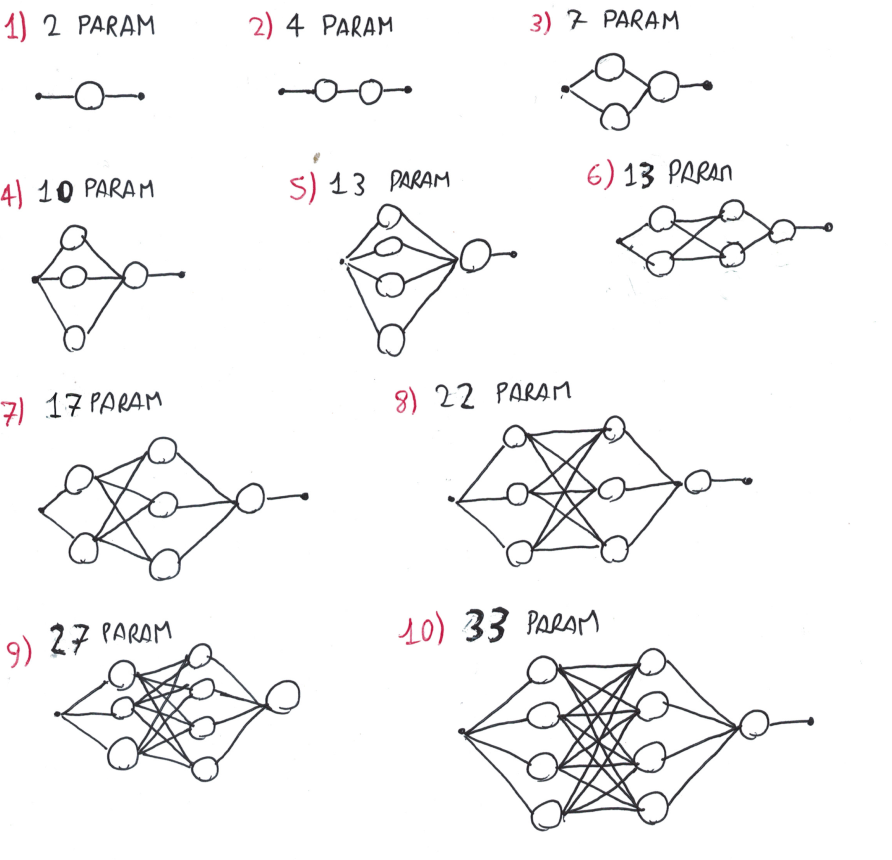 1) 2 PARAM
2) 4 PARAM
3) 7 PARAM
4) 10 PARAM
5) 13 PARAM
6) 13 PARAM
7) 17 PARAM
8) 22 PARAM
9) 27 PARAM
10) 33 PARAM